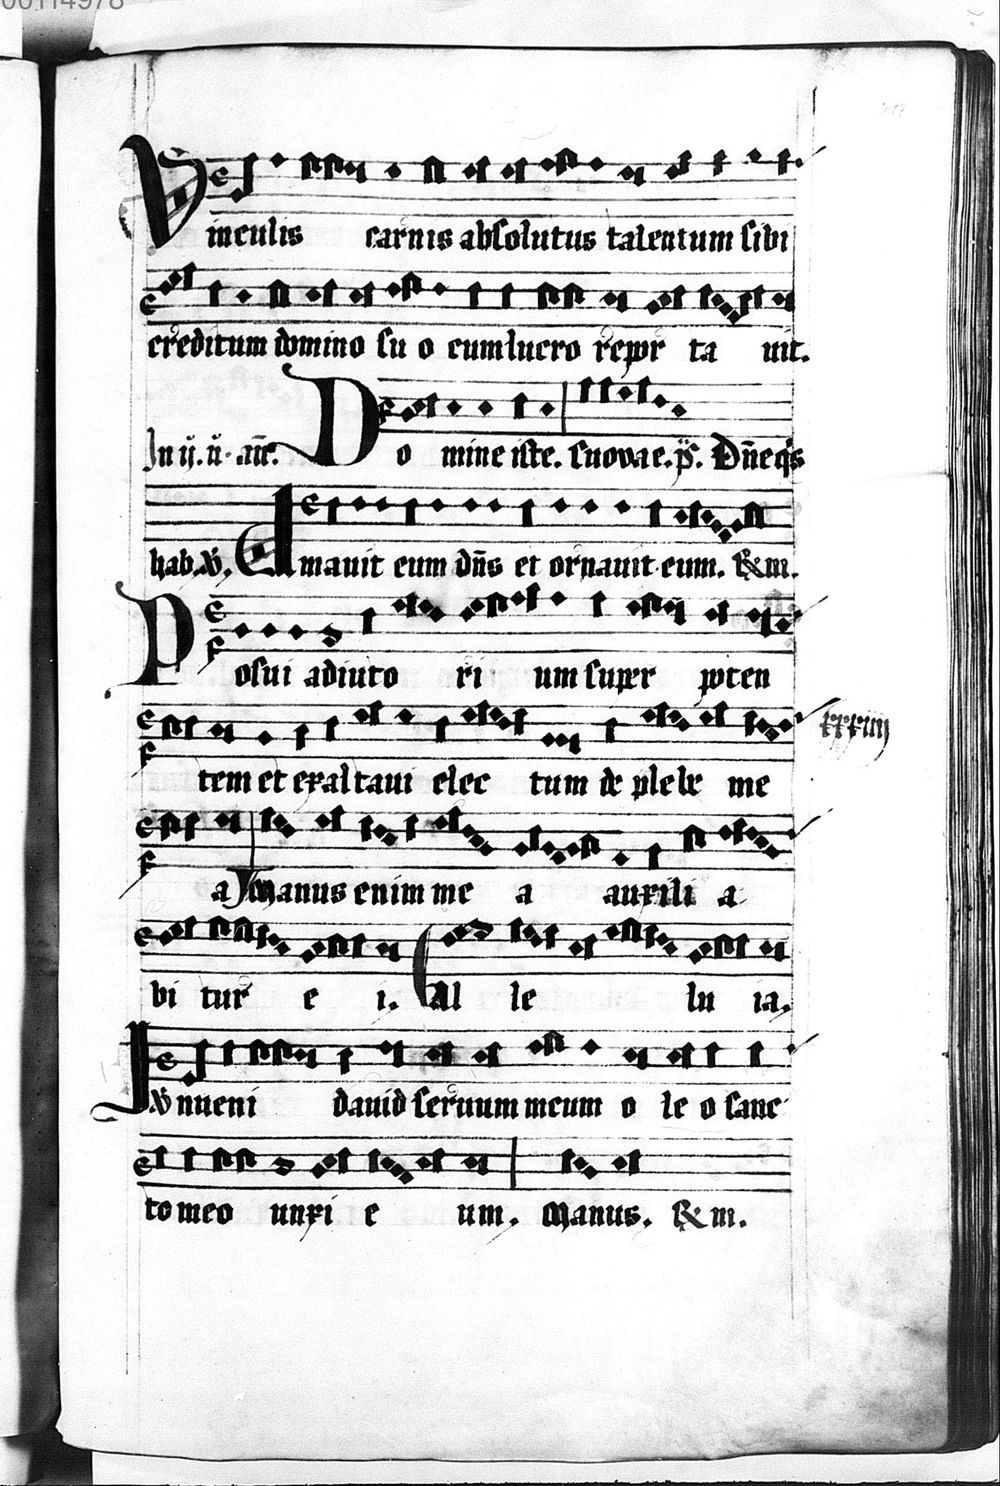 00114978
Vinculis carnis absolutus talentum sibi
creditum domino su o cum lucro repor ta uit.
In ij. ū. añ. Do mine iste. Euovae. ps. Dñe qs
hab. V̓. Amauit eum dñs et ornauit eum. &m.
Posui adiuto ri um super poten
tem et exaltaui elec tum de plebe me
a Manus enim me a auxili a
bi tur e i. Al le lu ia.
V̓ Inueni dauid seruum meum o le o sanc
to meo unxi e um. Manus. &m.